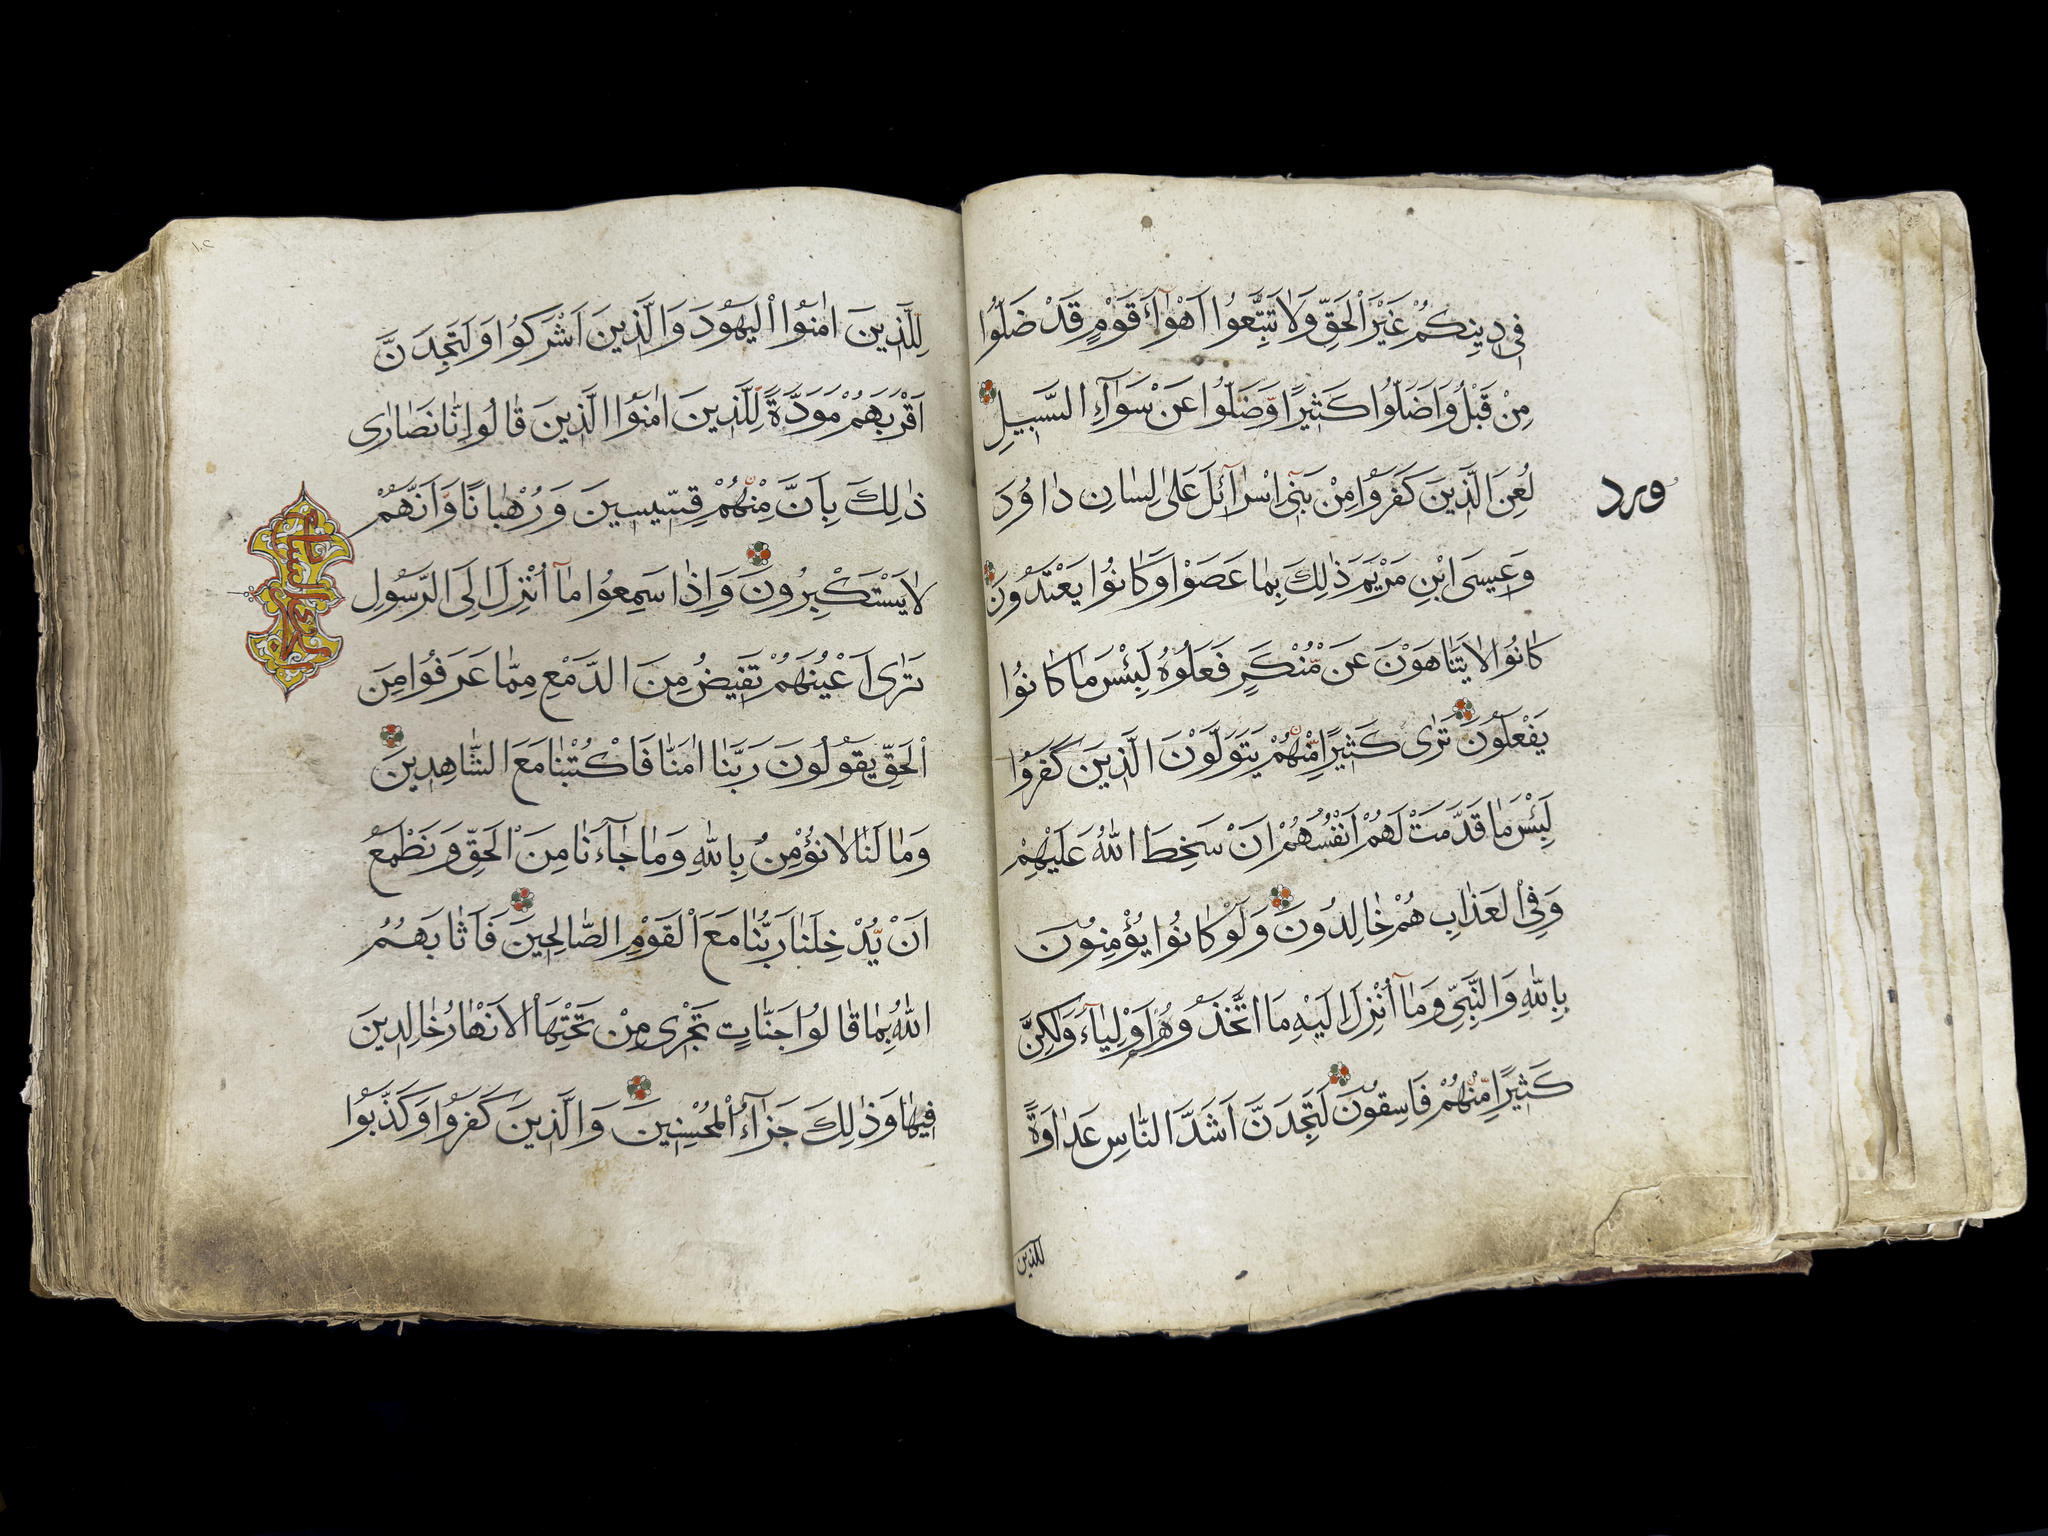 فِى دِينِكُمْ غَيْرَ الْحَقِّ وَلَا تَتَّبِعُوا اَهْوَآءَ قَوْمٍ قَدْ ضَلُّوا
مِنْ قَبْلُ وَاَضَلُّوا كَثِيرًا وَّضَلُّوا عَنْ سَوَآءِ السَّبِيلِ
لُعِنَ الَّذِينَ كَفَرُوا مِنْ بَنِى اِسْرَآئِلَ عَلَى لِسَانِ دَاوُدَ
ورد
وَعِيسَى ابْنِ مَرْيَمَ ذٰلِكَ بِمَا عَصَوْا وَّكَانُوا يَعْتَدُونَ
كَانُوا لَا يَتَنَاهَوْنَ عَنْ مُّنْكَرٍ فَعَلُوهُ لَبِئْسَ مَا كَانُوا
يَفْعَلُونَ تَرٰى كَثِيرًا مِّنْهُمْ يَتَوَلَّوْنَ الَّذِينَ كَفَرُوا
لَبِئْسَ مَا قَدَّمَتْ لَهُمْ اَنْفُسُهُمْ اَنْ سَخِطَ اللّٰهُ عَلَيْهِمْ
وَفِى الْعَذَابِ هُمْ خَالِدُونَ وَلَوْ كَانُوا يُؤْمِنُونَ
بِاللّٰهِ وَالنَّبِىِّ وَمَآ اُنْزِلَ اِلَيْهِ مَا اتَّخَذُوهُمْ اَوْلِيَآءَ وَلٰكِنَّ
كَثِيرًا مِّنْهُمْ فَاسِقُونَ لَتَجِدَنَّ اَشَدَّ النَّاسِ عَدَاوَةً
للذين
١٠٢
لِلَّذِينَ اٰمَنُوا الْيَهُودَ وَالَّذِينَ اَشْرَكُوا وَلَتَجِدَنَّ
اَقْرَبَهُمْ مَوَدَّةً لِلَّذِينَ اٰمَنُوا الَّذِينَ قَالُوا اِنَّا نَصَارٰى
ذٰلِكَ بِاَنَّ مِنْهُمْ قِسِّيسِينَ وَرُهْبَانًا وَّاَنَّهُمْ
لَا يَسْتَكْبِرُونَ وَاِذَا سَمِعُوا مَآ اُنْزِلَ اِلَى الرَّسُولِ
تَرٰى اَعْيُنَهُمْ تَفِيضُ مِنَ الدَّمْعِ مِمَّا عَرَفُوا مِنَ
الْحَقِّ يَقُولُونَ رَبَّنَا اٰمَنَّا فَاكْتُبْنَا مَعَ الشَّاهِدِينَ
وَمَا لَنَا لَا نُؤْمِنُ بِاللّٰهِ وَمَا جَآءَنَا مِنَ الْحَقِّ وَنَطْمَعُ
اَنْ يُّدْخِلَنَا رَبُّنَا مَعَ الْقَوْمِ الصَّالِحِينَ فَاَثَابَهُمُ
اللّٰهُ بِمَا قَالُوا جَنَّاتٍ تَجْرِى مِنْ تَحْتِهَا الْاَنْهَارُ خَالِدِينَ
فِيهَا وَذٰلِكَ جَزَآءُ الْمُحْسِنِينَ وَالَّذِينَ كَفَرُوا وَكَذَّبُوا